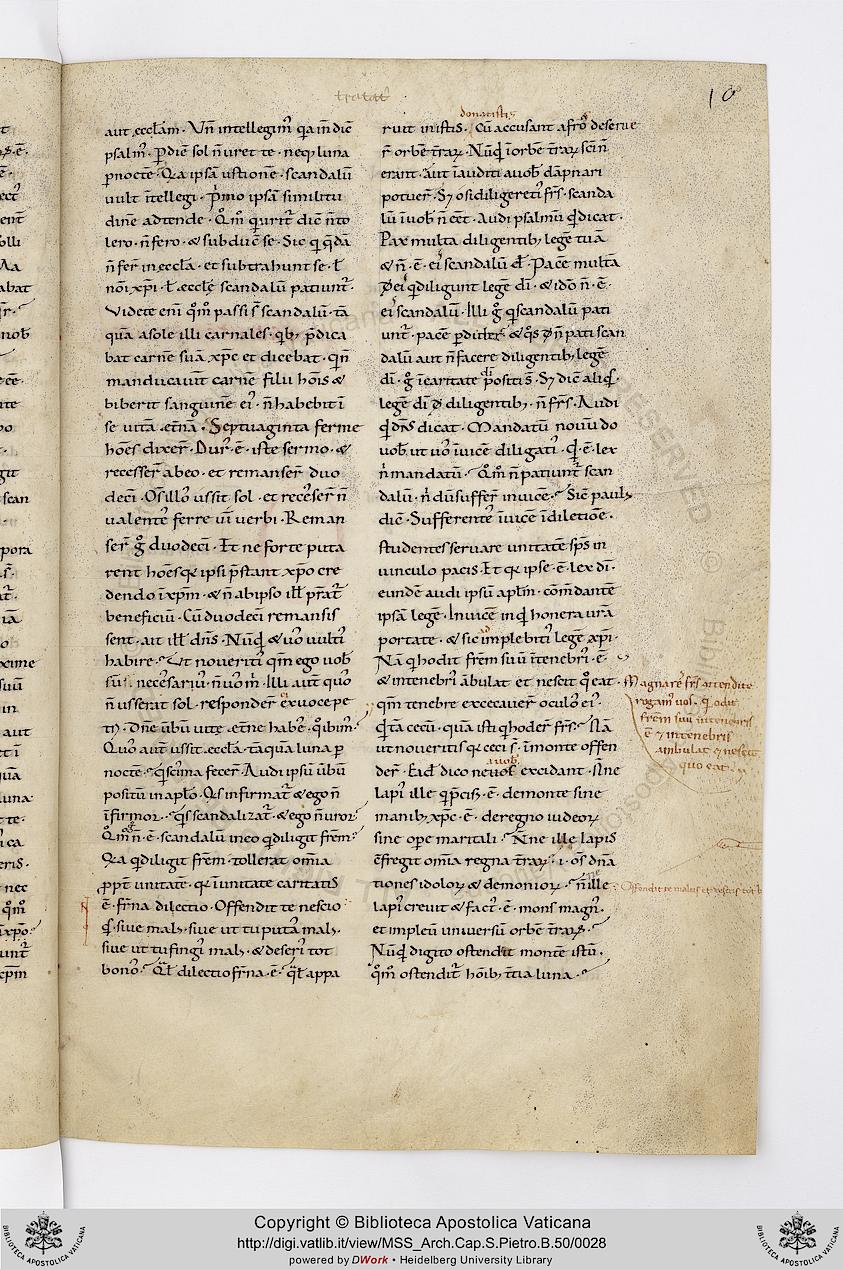 tratat
10
aut eccłam · Vñ intellegim᷒ q̇a in die
psalm᷒ · ꝑ diē sol ñ uret te · neq; luna
ꝑ noctē · Q̇a ipsā ustionē · scandalū
uult ītellegi · p̄mo ipsā similitu
dinē adtende · Q̊m̄ q urit᷒ dic̄ ñ to
lero · ñ fero · & subduc̄ se · Sic q q̇dā
ñ fer̄ in eccła · et subtrahunt se · ł
noī xp̄i · ł eccłę scandalū patiunt᷒ ·
Videte enī q̊m̄ passi s̄ scandalū · tā
quā a sole illi carnales · qb; p̄dica
bat carnē suā xp̄c et dicebat · Qi ñ
manducauit carnē filii hōis &
biberit sanguinē ei᷒ · ñ habebit ī
se uitā · etñā · Septuaginta ferme
hōēs dixer̄ · Dur᷒ · ē · iste sermo · &
recesser̄ ab eo · et remanser̄ duo
decī · Os̄ illos ussit sol · et recēser̄ ñ
ualentes ferre uī uerbi · Reman
ser̄ g̊ duodecī · Et ne forte puta
rent hōēs qͥ ipsi p̄stant xp̄o cre
dendo ī xp̄m · & ñ ab ipso illˀ p̄stat᷒
beneficiū · Cū duodecī remansis
sent · ait illˀ dñs · Nūq̇d & uos uultis
habire · Ut noueritis qm̄ ego uob̄
sū necessarius · ñ uos m̊ · Illi aut̄ quos
ñ usserat sol · responder̄ ex uoce pe
tri · Dñe ūbū uitę · etñe habes · q̊ ibim᷒ ·
Quos aut̄ ussit · eccła · tāquā luna ꝑ
noctē · q̇ scisma fecer̄ · Audi ipsū ūbū
positū in apł̄o · Qs infirmat᷒ & ego ñ
īfirmor · q̇s scandalizat᷒ · & ego ñ uror
Q̊m̄ ñ · ē · scandalū in eo q diligit frēm
Q̇a q diligit frēm · tollerat om̄ia
ꝓpt̄ unitatē · qͥ ī unitate caritatis
ē · frñā dilectio · Offendit te nescio
q̇s · siue mal᷒ · siue ut tu putas mal᷒ ·
siue ut tu fingis mal᷒ · & deseris tot
bonos · Q̇lˀ dilectio frñā · ē · q̇lˀ appa
donatistis
ruit in istis · Cū accusant afros deserue
r̄ orbē t̄raꝝ · Nūq̇d ī orbē t̄raꝝ sc̄i ñ
erant · Aut īauditi a uob̄ dāpnari
potuer̄ · S; o si diligeretis frēs · scanda
lū ī uob̄ ñ ēēt · Audi psalmū q̇d dicat ·
Pax multa diligentib; legē tuā
& ñ · ē · eis scandalū · Pacē multā
eis q diligunt legē dī · & idō ñ · ē ·
eis scandalū · Illi g̊ q scandalū pati
unt᷒ · pacē perdiderunt & q̊s d̄ ñ pati scan
dalū aut ñ facere diligentib; legē
dī · g̊ ī caritate positis · S; dic̄ aliq̇s ·
legē dī d̄ diligentib; · ñ frēs · Audi
q̇d dñs dicat · Mandatū nouū do
uob̄ · ut uos īuicē diligatis · Q̇d · ē · lex
ñ mandatū · Q̊m̄ ñ patiunt᷒ scan
dalū · ñ dū suffer̄ inuicē · Sic̄ paul᷒
dic̄ · Sufferentes īuicē ī dilectiōe ·
studentes seruare unitatē sp̄s in
uinculo pacis · Et qͥ ipse · ē · lex dī ·
eundē audi ipsū apł̄m · cōm̄dantē
ipsā legē · Inuicē inq̇d honera urā
portate · & sic implebitis legē xp̄i ·
Nā q hodit frēm suū ī tenebris · ē ·
& in tenebris ābulat et nescit q̊ eat ·
qm̄ tenebre excecauer̄ oculos ei᷒ ·
Q̇ tā cecū · quā isti q hoder̄ frēs · Nā
ut noueritis qͥ ceci s̄ · ī monte offen
der̄ · Eadē dico ne uob̄ excidant · Ñne
a uob̄
lapis ille q p̄cis᷒ · ē · de monte sine
manib; xp̄c · ē · de regno iudeoꝝ
sine ope maritali · Ñne ille lapis
c̄fregit om̄ia regna t̄raꝝ · i · os̄ dñā
tiones idoloꝝ & demonioꝝ · Ñne ille
lapis creuit & fact᷒ · ē · mons magn᷒ ·
et impleū uniuersū orbē t̄raꝝ ·
Nūq̇d digito ostendit montē istū ·
q̊m̄ ostendit᷒ hōib; t̄tia luna ·
Magna rē frēs attendite
rogam᷒ uos · q odit
frēm suū in tenebris
ē & in tenebris
ambulat & nescit
quo eat ·
Offendit te malus et deseris tot b
Copyright © Biblioteca Apostolica Vaticana
http://digi.vatlib.it/view/MSS_Arch.Cap.S.Pietro.B.50/0028
powered by DWork • Heidelberg University Library
BIBLIOTECA APOSTOLICA VATICANA
BIBLIOTECA APOSTOLICA VATICANA